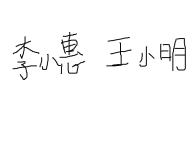 李小惠 王小明